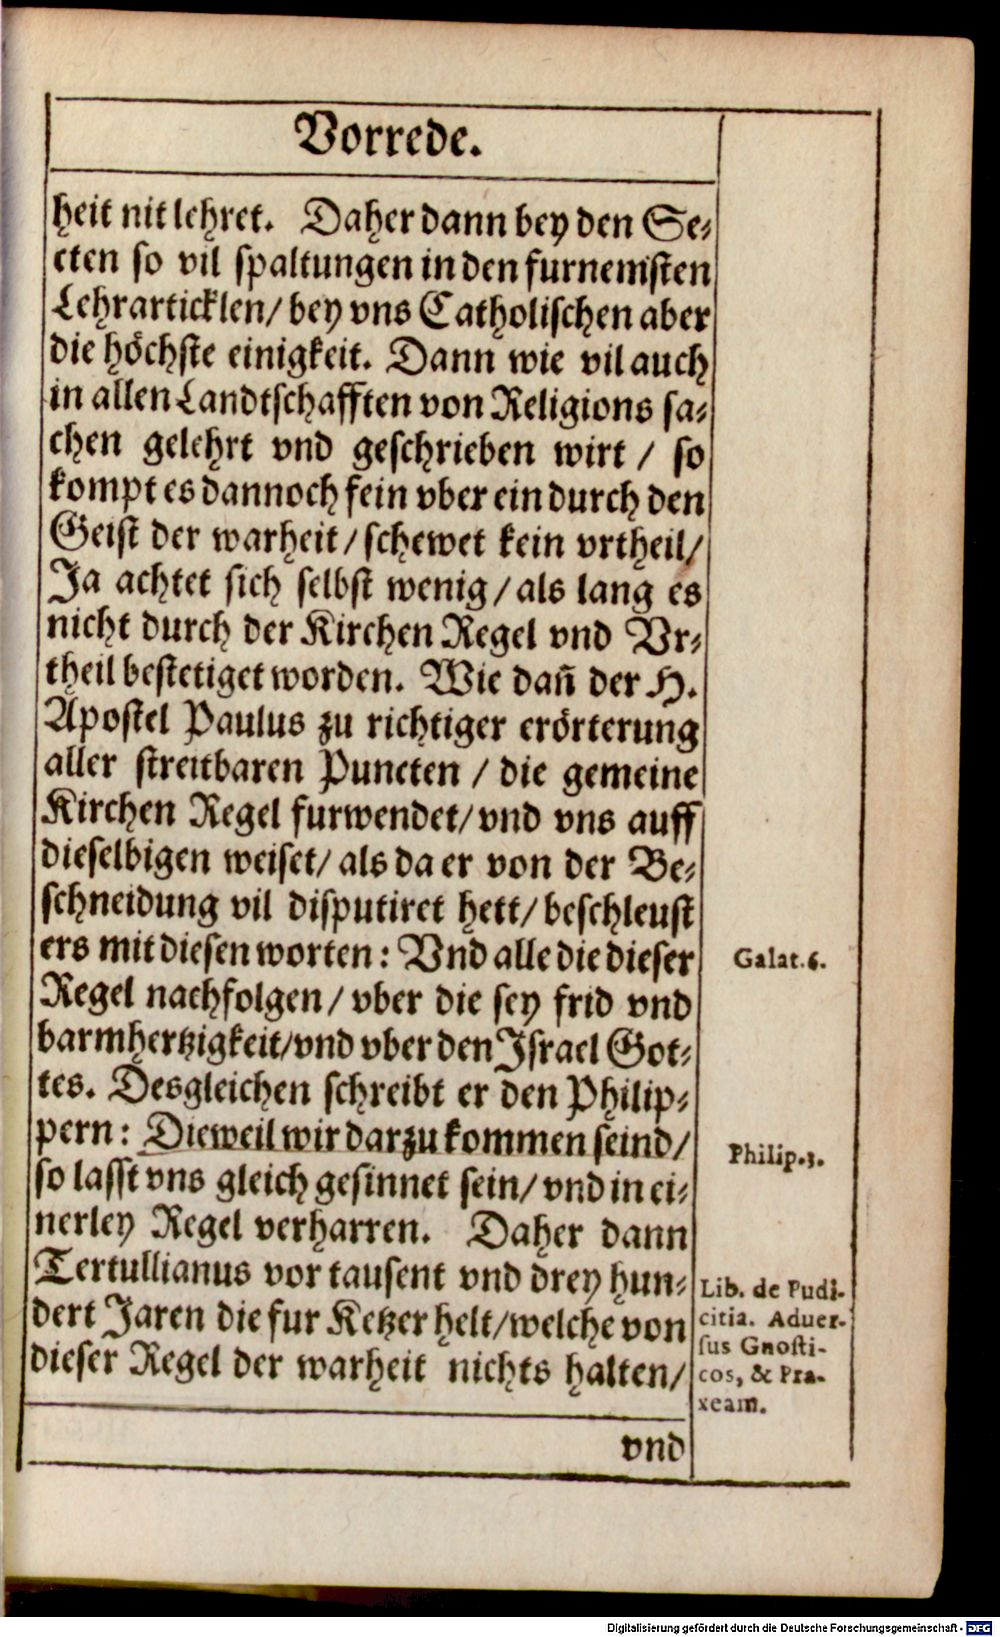 Vorrede.
heit nit lehret. Daher dann bey den Se-
cten so vil spaltungen in den furnemsten
Lehrarticklen/ bey vns Catholischen aber
die höchste einigkeit. Dann wie vil auch
in allen Landtschafften von Religions sa-
chen gelehrt vnd geschrieben wirt / so
kompt es dannoch fein vber ein durch den
Geist der warheit / schewet kein vrtheil/
Ja achtet sich selbst wenig / als lang es
nicht durch der Kirchen Regel vnd Vr-
theil bestetiget worden. Wie dan̄ der H.
Apostel Paulus zu richtiger erörterung
aller streitbaren Puncten / die gemeine
Kirchen Regel furwendet/ vnd vns auff
dieselbigen weiset/ als da er von der Be-
schneidung vil disputiret hett/ beschleust
ers mit diesen worten: Vnd alle die dieser
Regel nachfolgen / vber die sey frid vnd
barmhertzigkeit/vnd vber den Israel Got-
tes. Desgleichen schreibt er den Philip-
pern: Dieweil wir darzu kommen seind/
so lasst vns gleich gesinnet sein/ vnd in ei-
nerley Regel verharren. Daher dann
Tertullianus vor tausent vnd drey hun-
dert Jaren die fur Ketzer helt/welche von
dieser Regel der warheit nichts halten/
vnd
Galat.6.
Philip.3.
Lib. de Pudi-
citia. Aduer-
sus Gnosti-
cos, & Pra-
xeam.
Digitalisierung gefördert durch die Deutsche Forschungsgemeinschaft - DFG